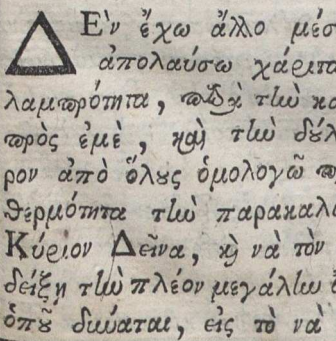 ΔΕν ἔχω ἄλλο μέσ
ἀπολαύσω χάριτα
λαμπρότητα, τὴν
πρὸς ἐμὲ, καὶ τὴν δύλ
ρον ἀπὸ ὅλȣς ὁμολογῶ
θερμότητα τὴν παρακαλ
Κύριον Δεῖνα, καὶ νὰ τὸν
δείξῃ τὴν πλέον μεγάλην
ὁπȣ͂ δύναται, εἰς τὸ νὰ